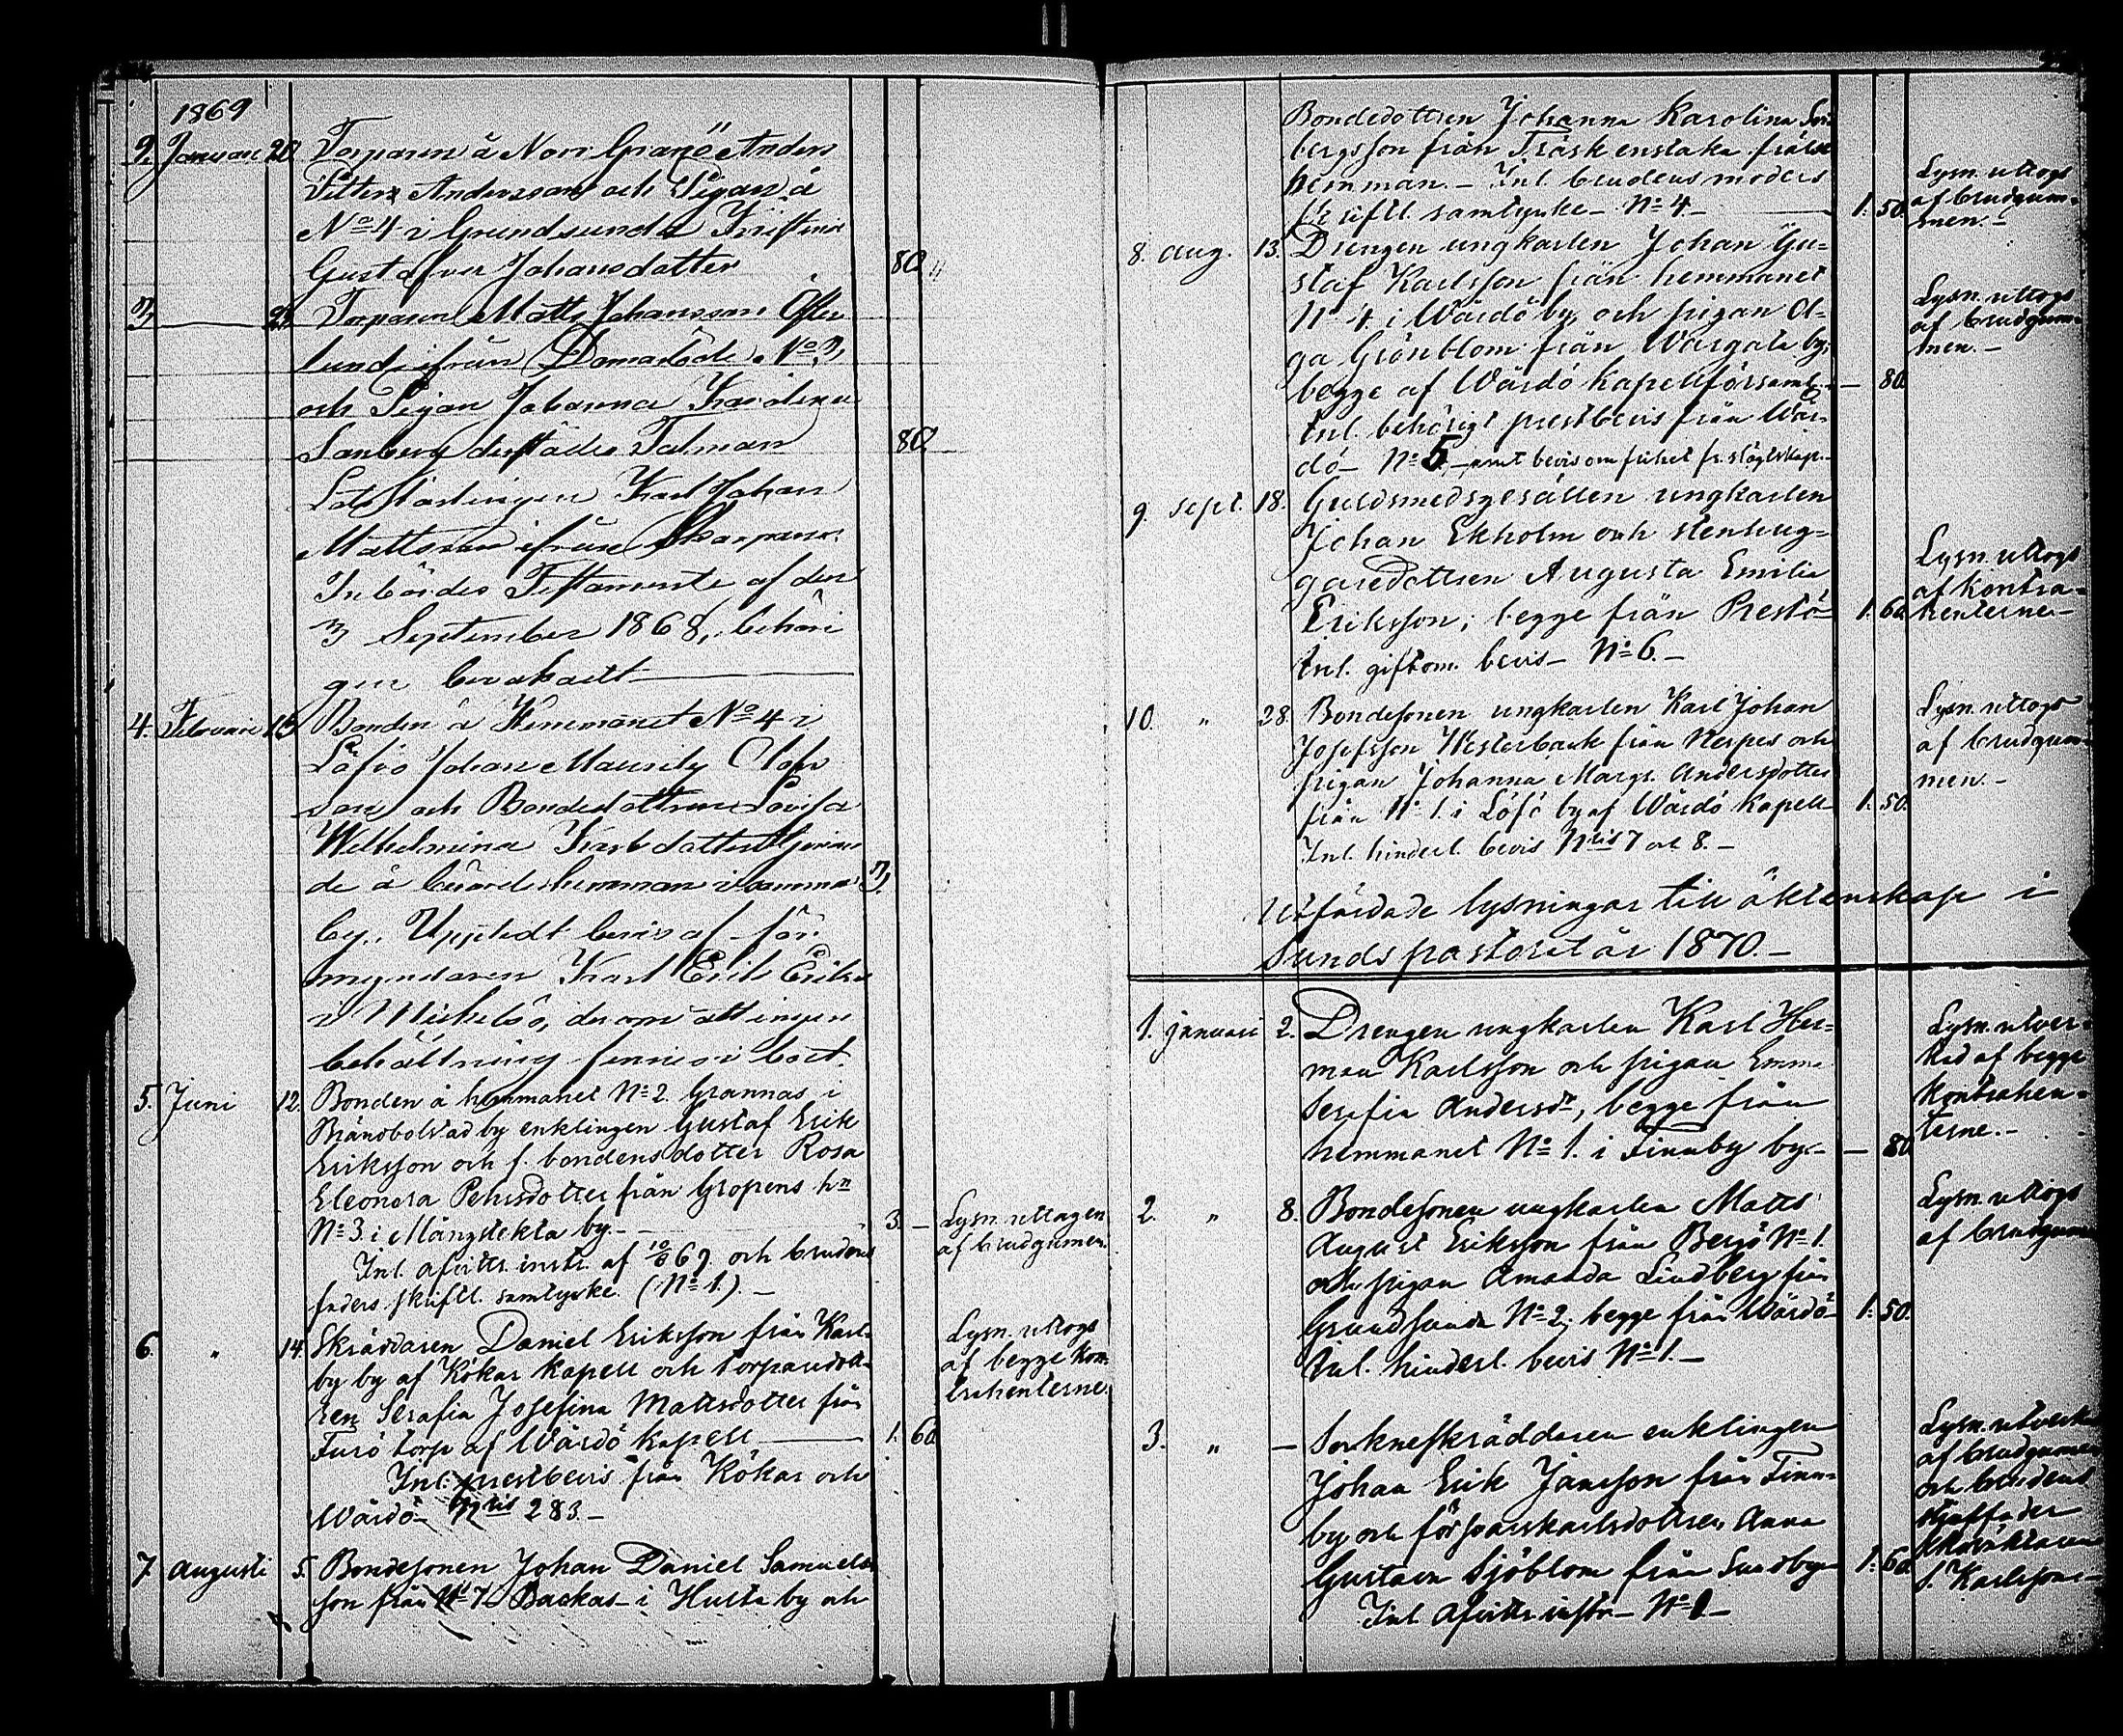 1869
2. Januari 20. Torparen å Norr Granö Anders
Petter Andersson och Pigan å
No 4 i Grundsunda Kristina
Gustafva Johansdotter 80 "
3 21 Torparen Matts Johansson Öster
lund ifrån Damarböle No 3
och Pigan Johanna Karolina
Sanberg derstädes Talman 80
Lotslärlingen Karl Johan
Mattsson ifrån Skarpans
Inbördes Testamente af den
3 September 1868, behöri
gen bevakadt
4. Februari 15 Bonden å Hemmanet No 4 i
Löfvö Johan Maurits Olofs
son och Bondedottren Lovisa
Wilhelmina Karlsdotter tjenan
de å hemman i samma 3
by. Uppstedt bevis af för
myndaren Karl Erik Eriks
i Mickelsö, derom att ingen
behållning finnes i boet.
5. Juni 12. Bonden å hemmanet No 2. Grannas i
Brändbolstad by enklingen Gustaf Erik
Eriksson och f. bondens dotter Rosa
Eleonora Pehrsdotter från Gropens hn
No 3 i Mångstekta by. 3. — Lysn. uttagen
af brudgumen.
Inl. afvittr. instr. af 10/6 69. och brudens
faders skriftl. samtycke. (No 1.) —
6. " 14. Skräddaren Daniel Eriksson från Karl-
by by af Kökar kapell och torparedott-
ren Serafia Josefina Mattsdotter från
Furö torp af Wårdö kapell 1. 60
Lysn. uttogs
af begge kon-
trahenterne.
Inl. prestbevis från Kökar och
Wårdö — Nris 2 & 3. —
7 Augusti 5. Bondesonen Johan Daniel Samuels-
son från No 7 Backas i Hulta by och
Bondedottren Johanna Karolina
bergsson från Träsk enstaka frälse
hemman. — Inl. brudens moders
skriftl. samtycke — No 4. — 1. 50.
Lysn. uttogs
af brudgum-
men. —
8. Aug. 13. Drengen ungkarlen Johan Gu-
staf Karlsson från hemmanet
No 4 i Wårdö by, och pigan Ol-
ga Grönblom från Wargata by,
begge af Wårdö kapellförsaml. — 80.
Inl. behörigt prestbevis från Wår-
dö — No 5. — samt bevis om frihet fr. slägtskap. —
Lysn. uttogs
af brudgum-
men. —
9. Sept. 18. Guldsmedsgesällen ungkarlen
Johan Ekholm och stenhug-
garedottren Augusta Emilia
Eriksson, begge från Prestö — 1. 60
Inl. giftom. bevis — No 6. —
Lysn. uttogs
af kontra-
henterne —
10. " 28. Bondesonen ungkarlen Karl Johan
Josefsson Westerback från Nerpes och
pigan Johanna Margr. Andersdotter
från No 1. i Löfö by af Wårdö kapell 1. 50.
Inl. hinderl. bevis Nris 7 och 8. —
Lysn. uttogs
af brudgum-
men. —
Utfärdade lysningar till äktenskap i
Sunds pastorat år 1870. —
1. januari 2. Drengen ungkarlen Karl Her-
man Karlsson och pigan Emma
Serafia Andersdr, begge från
hemmanet No 1. i Finnby by. — 80
Lysn. utver-
kad af begge
kontrahen-
terne. —
2. " 8. Bondesonen ungkarlen Matts
August Eriksson från Bergö No 1.
och pigan Amanda Lindberg från
Grundsunda No 2, begge från Wårdö 1. 50.
Inl. hinderl. bevis No 1. —
Lysn. uttogs
af brudgum
3. " — Sockneskräddaren enklingen
Johan Erik Jansson från Finn-
by och försvarskarlsdottren Anna
Gustava Sjöblom från Sundby — 1. 60.
Inl. Afvittr. instr. — No 1 —
Lysn. utverk.
af brudgumen
och brudens
styffader
J. Karlsson —